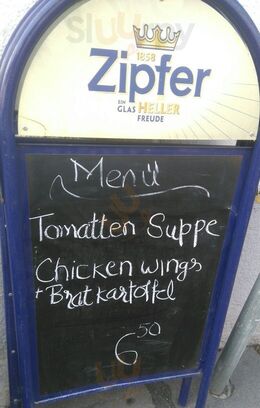 sluurpy
1858
Zipfer
EIN
GLAS HELLER
FREUDE
Menü
Tomatten Suppe
Chicken wings
+ Bratkartoffel
6 50